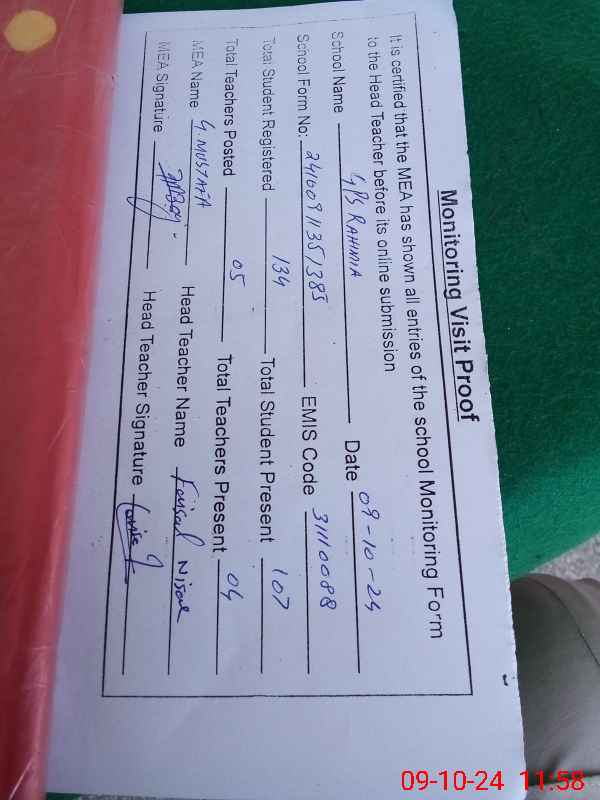 Monitoring Visit Proof
It is certified that the MEA has shown all entries of the school Monitoring Form
to the Head Teacher before its online submission
School Name GPS RAHIMIA Date 09-10-24
School Form No: 24100911351385 EMIS Code 31110088
Total Student Registered 134 Total Student Present 107
Total Teachers Posted 05 Total Teachers Present 04
MEA Name G. MUSTAFA Head Teacher Name Faisal Nisar
MEA Signature Head Teacher Signature
09-10-24 11:58